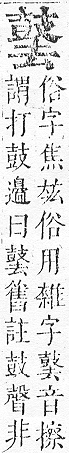 俗字焦竑俗用雜字音擦
謂打鼓邉曰舊註鼓聲非